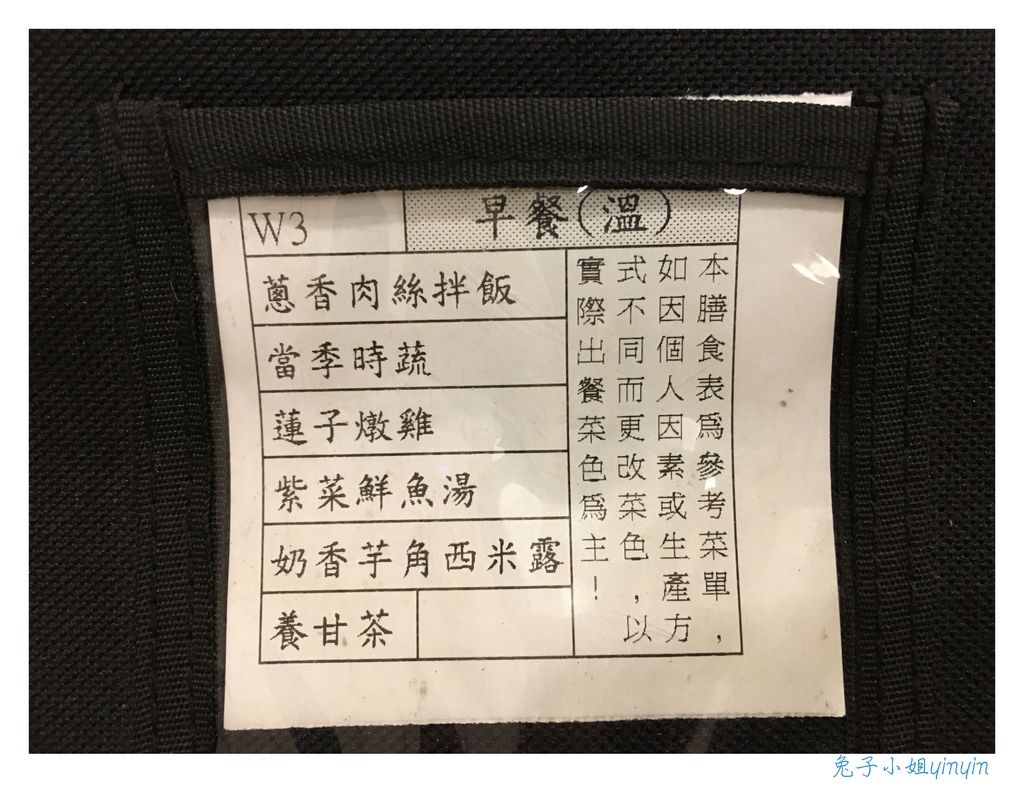 W3
早餐(溫)
蔥香肉絲拌飯
當季時蔬
蓮子燉雞
紫菜鮮魚湯
奶香芋角西米露
養甘茶
本膳食表為參考菜單，
如因個人因素或生產方
式不同而更改菜色，以
實際出餐菜色為主！
兔子小姐yinyin